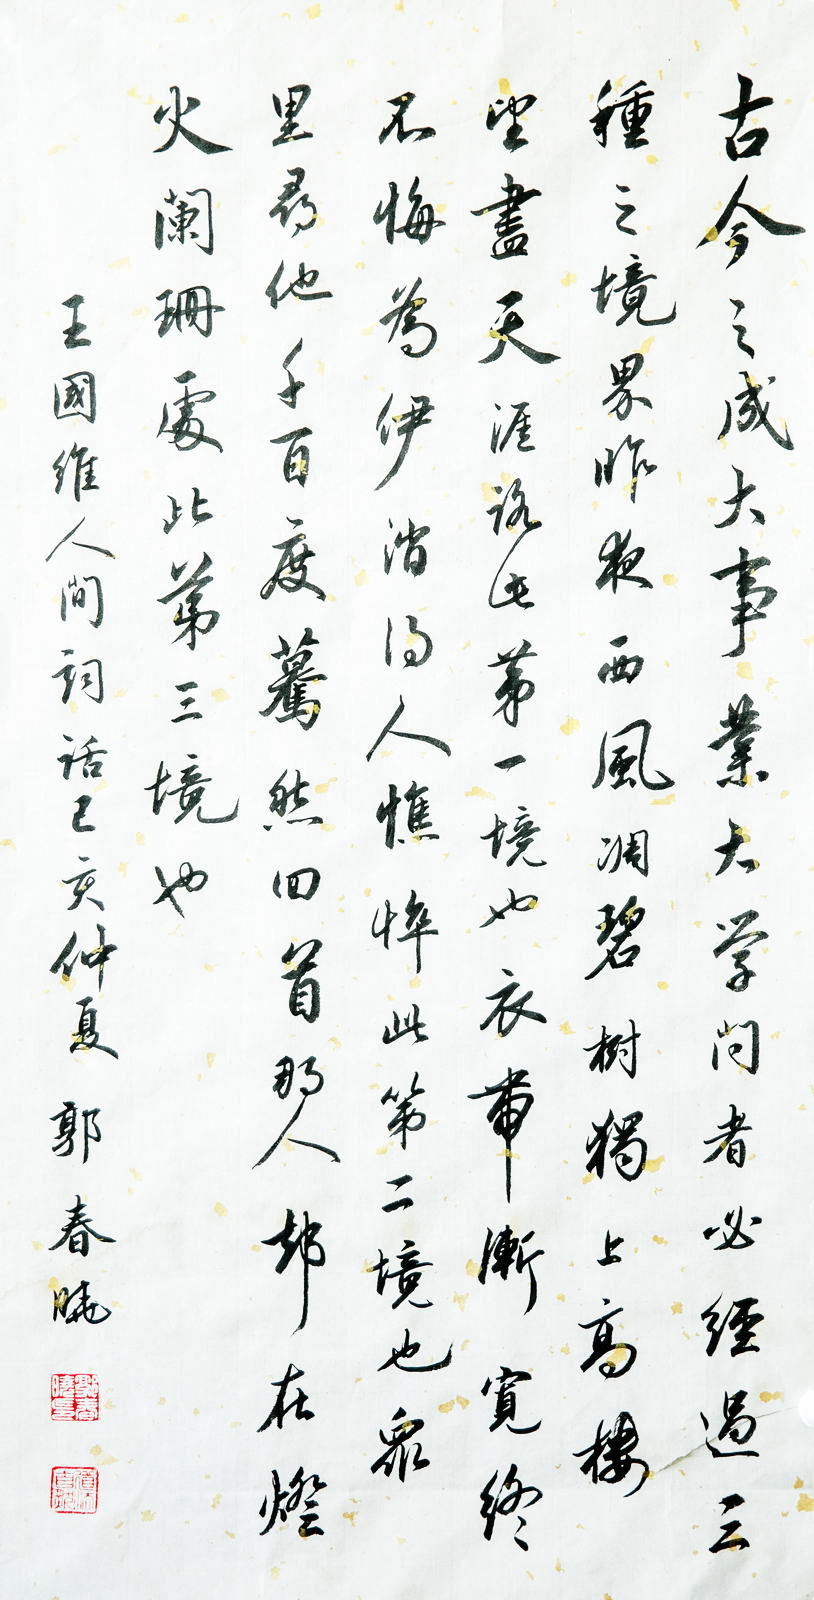 古今之成大事業大学问者必經過三
種之境界昨夜西風凋碧樹獨上高樓
望盡天涯路此第一境也衣带漸寬終
不悔為伊消得人憔悴此第二境也眾
里尋他千百度驀然回首那人却在燈
火闌珊處此第三境也
王國維人间詞話己亥仲夏郭春曉